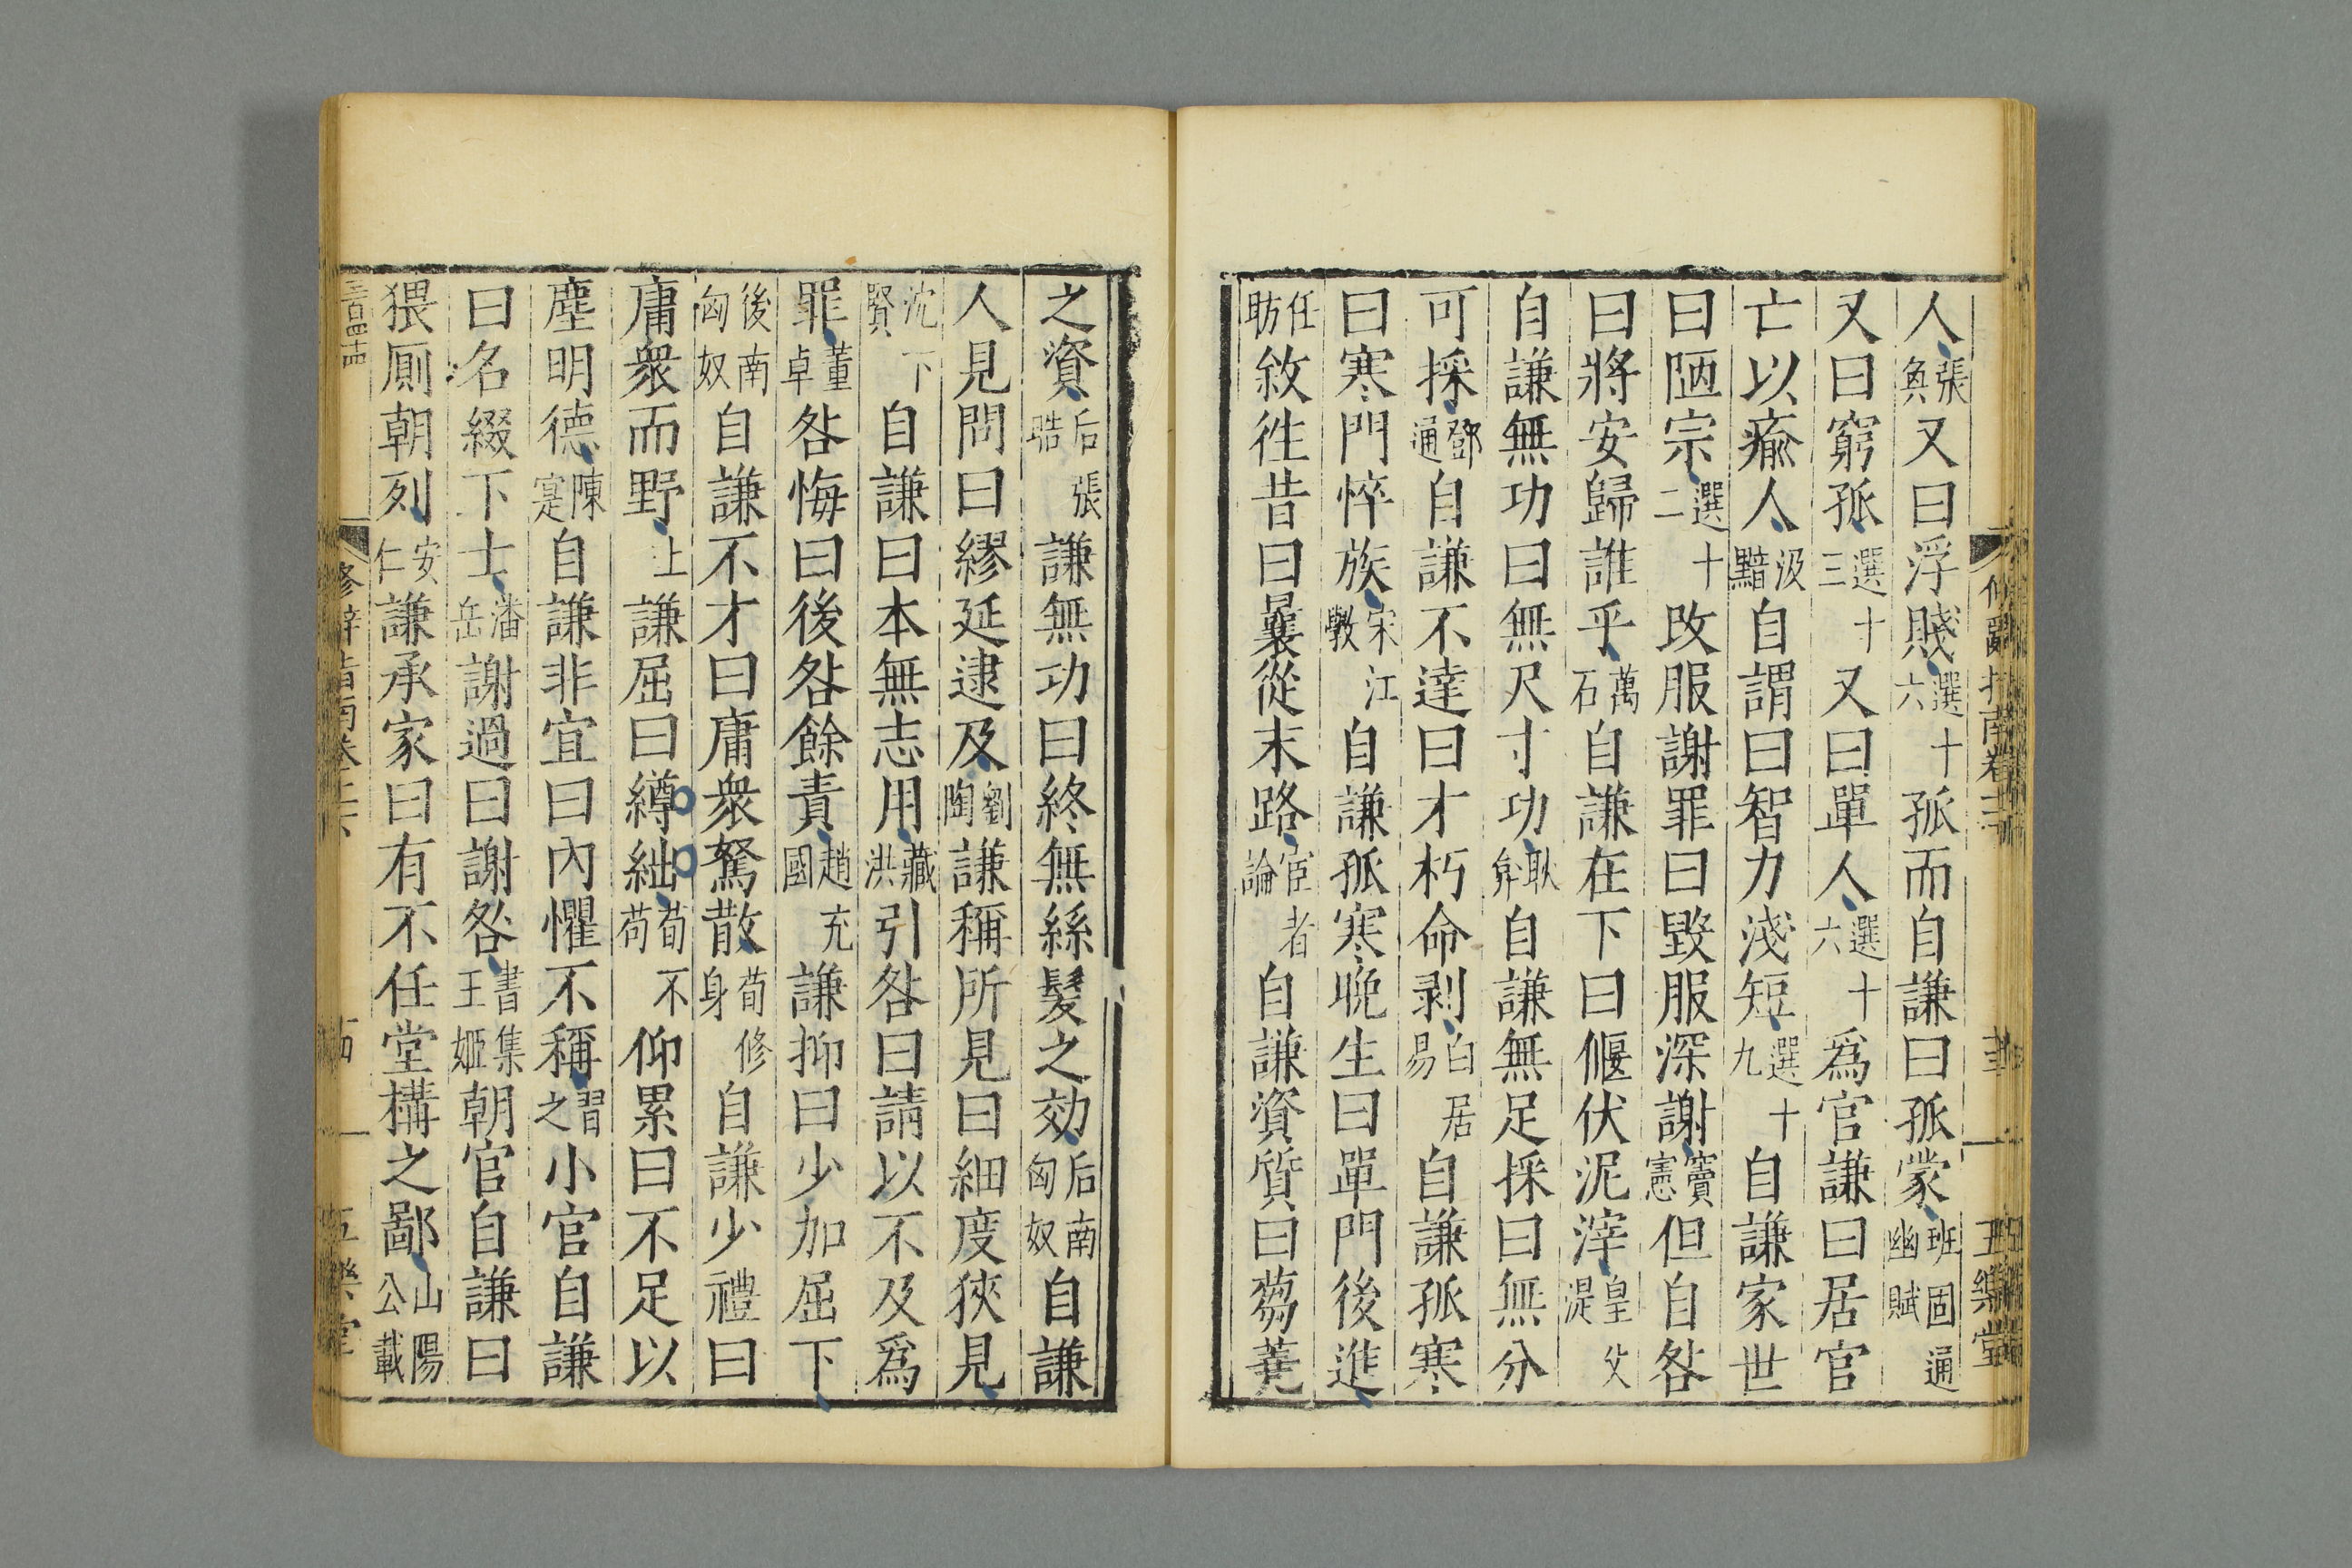 人張奐又曰浮賤選十六孤而自謙曰孤蒙班固通幽賦
又曰窮孤選十三又曰單人選十六為官謙曰居官
亡以瘉人汲黯自謂曰智力淺短選十九自謙家世
曰陋宗選十二改服謝罪曰毀服深謝竇憲但自咎
曰將安歸誰乎萬石自謙在下曰偃伏泥滓皇父湜
自謙無功曰無尺寸功耿弇自謙無足採曰無分
可採鄧通自謙不達曰才朽命剥白居易自謙孤寒
曰寒門悴族宋江斅自謙孤寒晚生曰單門後進
任昉敘徃昔曰曩從末路宦者論自謙資質曰蒭蕘
之資后張酷謙無功曰終無絲髮之効后南匈奴自謙
人見問曰繆延逮及劉陶謙稱所見曰細度狹見
沈下賢自謙曰本無志用臧洪引咎曰請以不及爲
罪董卓咎悔曰後咎餘責趙充國謙抑曰少加屈下
後南匈奴自謙不才曰庸衆駑散荀修身自謙少禮曰
庸衆而野上謙屈曰繜絀荀不苟仰累曰不足以
塵明德陳寔自謙非宜曰內懼不稱習之小官自謙
曰名綴下士潘岳謝過曰謝咎書集王姬朝官自謙曰
猥厠朝列安仁謙承家曰有不任堂構之鄙山陽公載
修辭指南卷 五樂堂